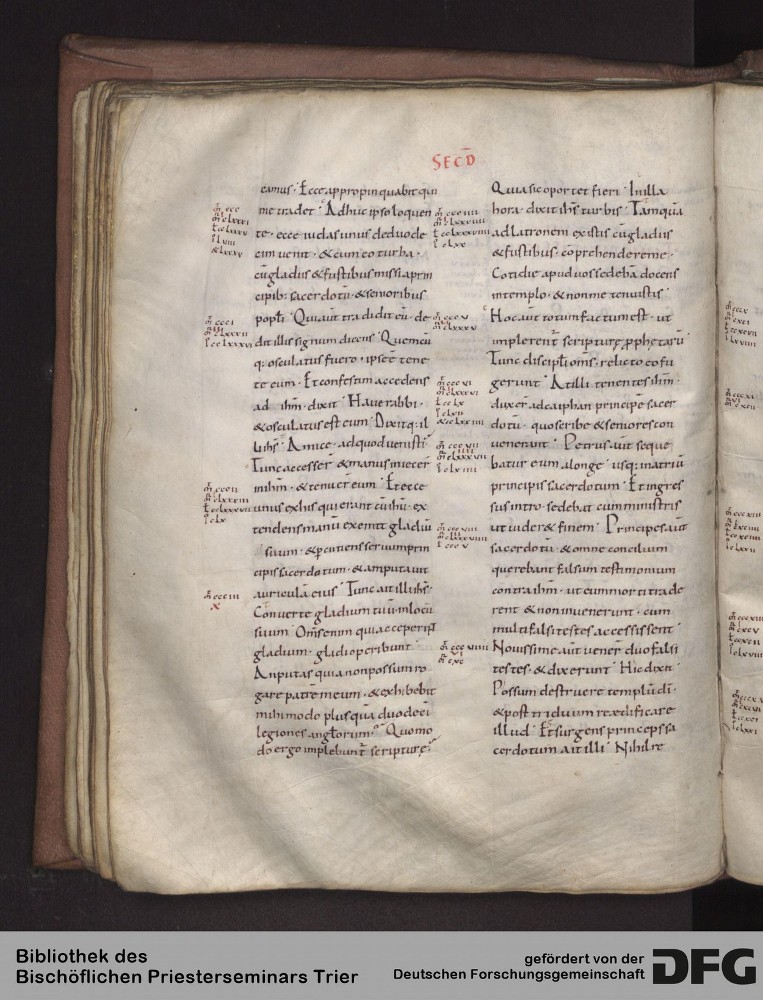 SECD̄
eamus · Ecce appropinquabit qui
me tradet · Adhuc ipso loquen
te · ecce iudas unus de duode
cim uenit · & cum eo turba ·
cū gladiis & fustibus missi a prin
cipib; sacerdotū · & senioribus
popłi · Qui aūt tradidit eū · de
dit illis signum dicens · Quemcū
q; osculatus fuero · ipse ē tene
te eum · Et confestim accedens
ad ihm̄ · dixit · Haue rabbi ·
& osculatus est eum · Dixitq; il
li ihs̄ · Amice · ad quod uenisti ·
Tunc accesser̄ & manus iniecer̄
in ihm̄ · & tenuer̄ eum · Et ecce
unus ex his qui erant cū ihū · ex
tendens manū exemit gladiū
suum · & percutiens seruum prin
cipis sacerdotum · & amputauit
auriculā eius · Tunc ait illi ihs̄ ·
Conuerte gladium tuū in locū
suum · Om̄s enim qui acceperint
gladium · gladio peribunt ·
An putas quia non possum ro
gare patrē meum · & exhibebit
mihi modo plus quā duodeci
legiones angłorum · Quomo
do ergo implebunt̄ scripturę ·
Quia sic oportet fieri · In illa
hora · dixit ihs̄ turbis · Tamquā
ad latronem existis cū gladiis
& fustibus · cōprehendere me ·
Cotidie apud uos sedebā docens
in templo · & non me tenuistis ·
Hoc aūt totum factum est · ut
implerent̄ scripturę prophetarū ·
Tunc discipłi om̄s · relicto eo fu
gerunt · At illi tenentes ihm̄ ·
duxer̄ ad caiphan principē sacer
dotū · quo scribę & seniores con
uenerant · Petrus aūt seque
batur eum a longe · usq; in atriū
principis sacerdotum · Et ingres
sus intro · sedebat cum ministris
ut uider& finem · Principes aūt
sacerdotū · & omne concilium
querebant falsum testimonium
contra ihm̄ · ut eum morti trade
rent & non inuenerunt · cum
multi falsi testes accessissent ·
Nouissime aūt uener̄ duo falsi
testes · & dixerunt · Hic dixit ·
Possum destruere templū dī ·
& post triduum reędificare
illud · Et surgens princeps sa
cerdotum ait illi · Nihil re
Bibliothek des
Bischöflichen Priesterseminars Trier
gefördert von der
Deutschen Forschungsgemeinschaft
DFG